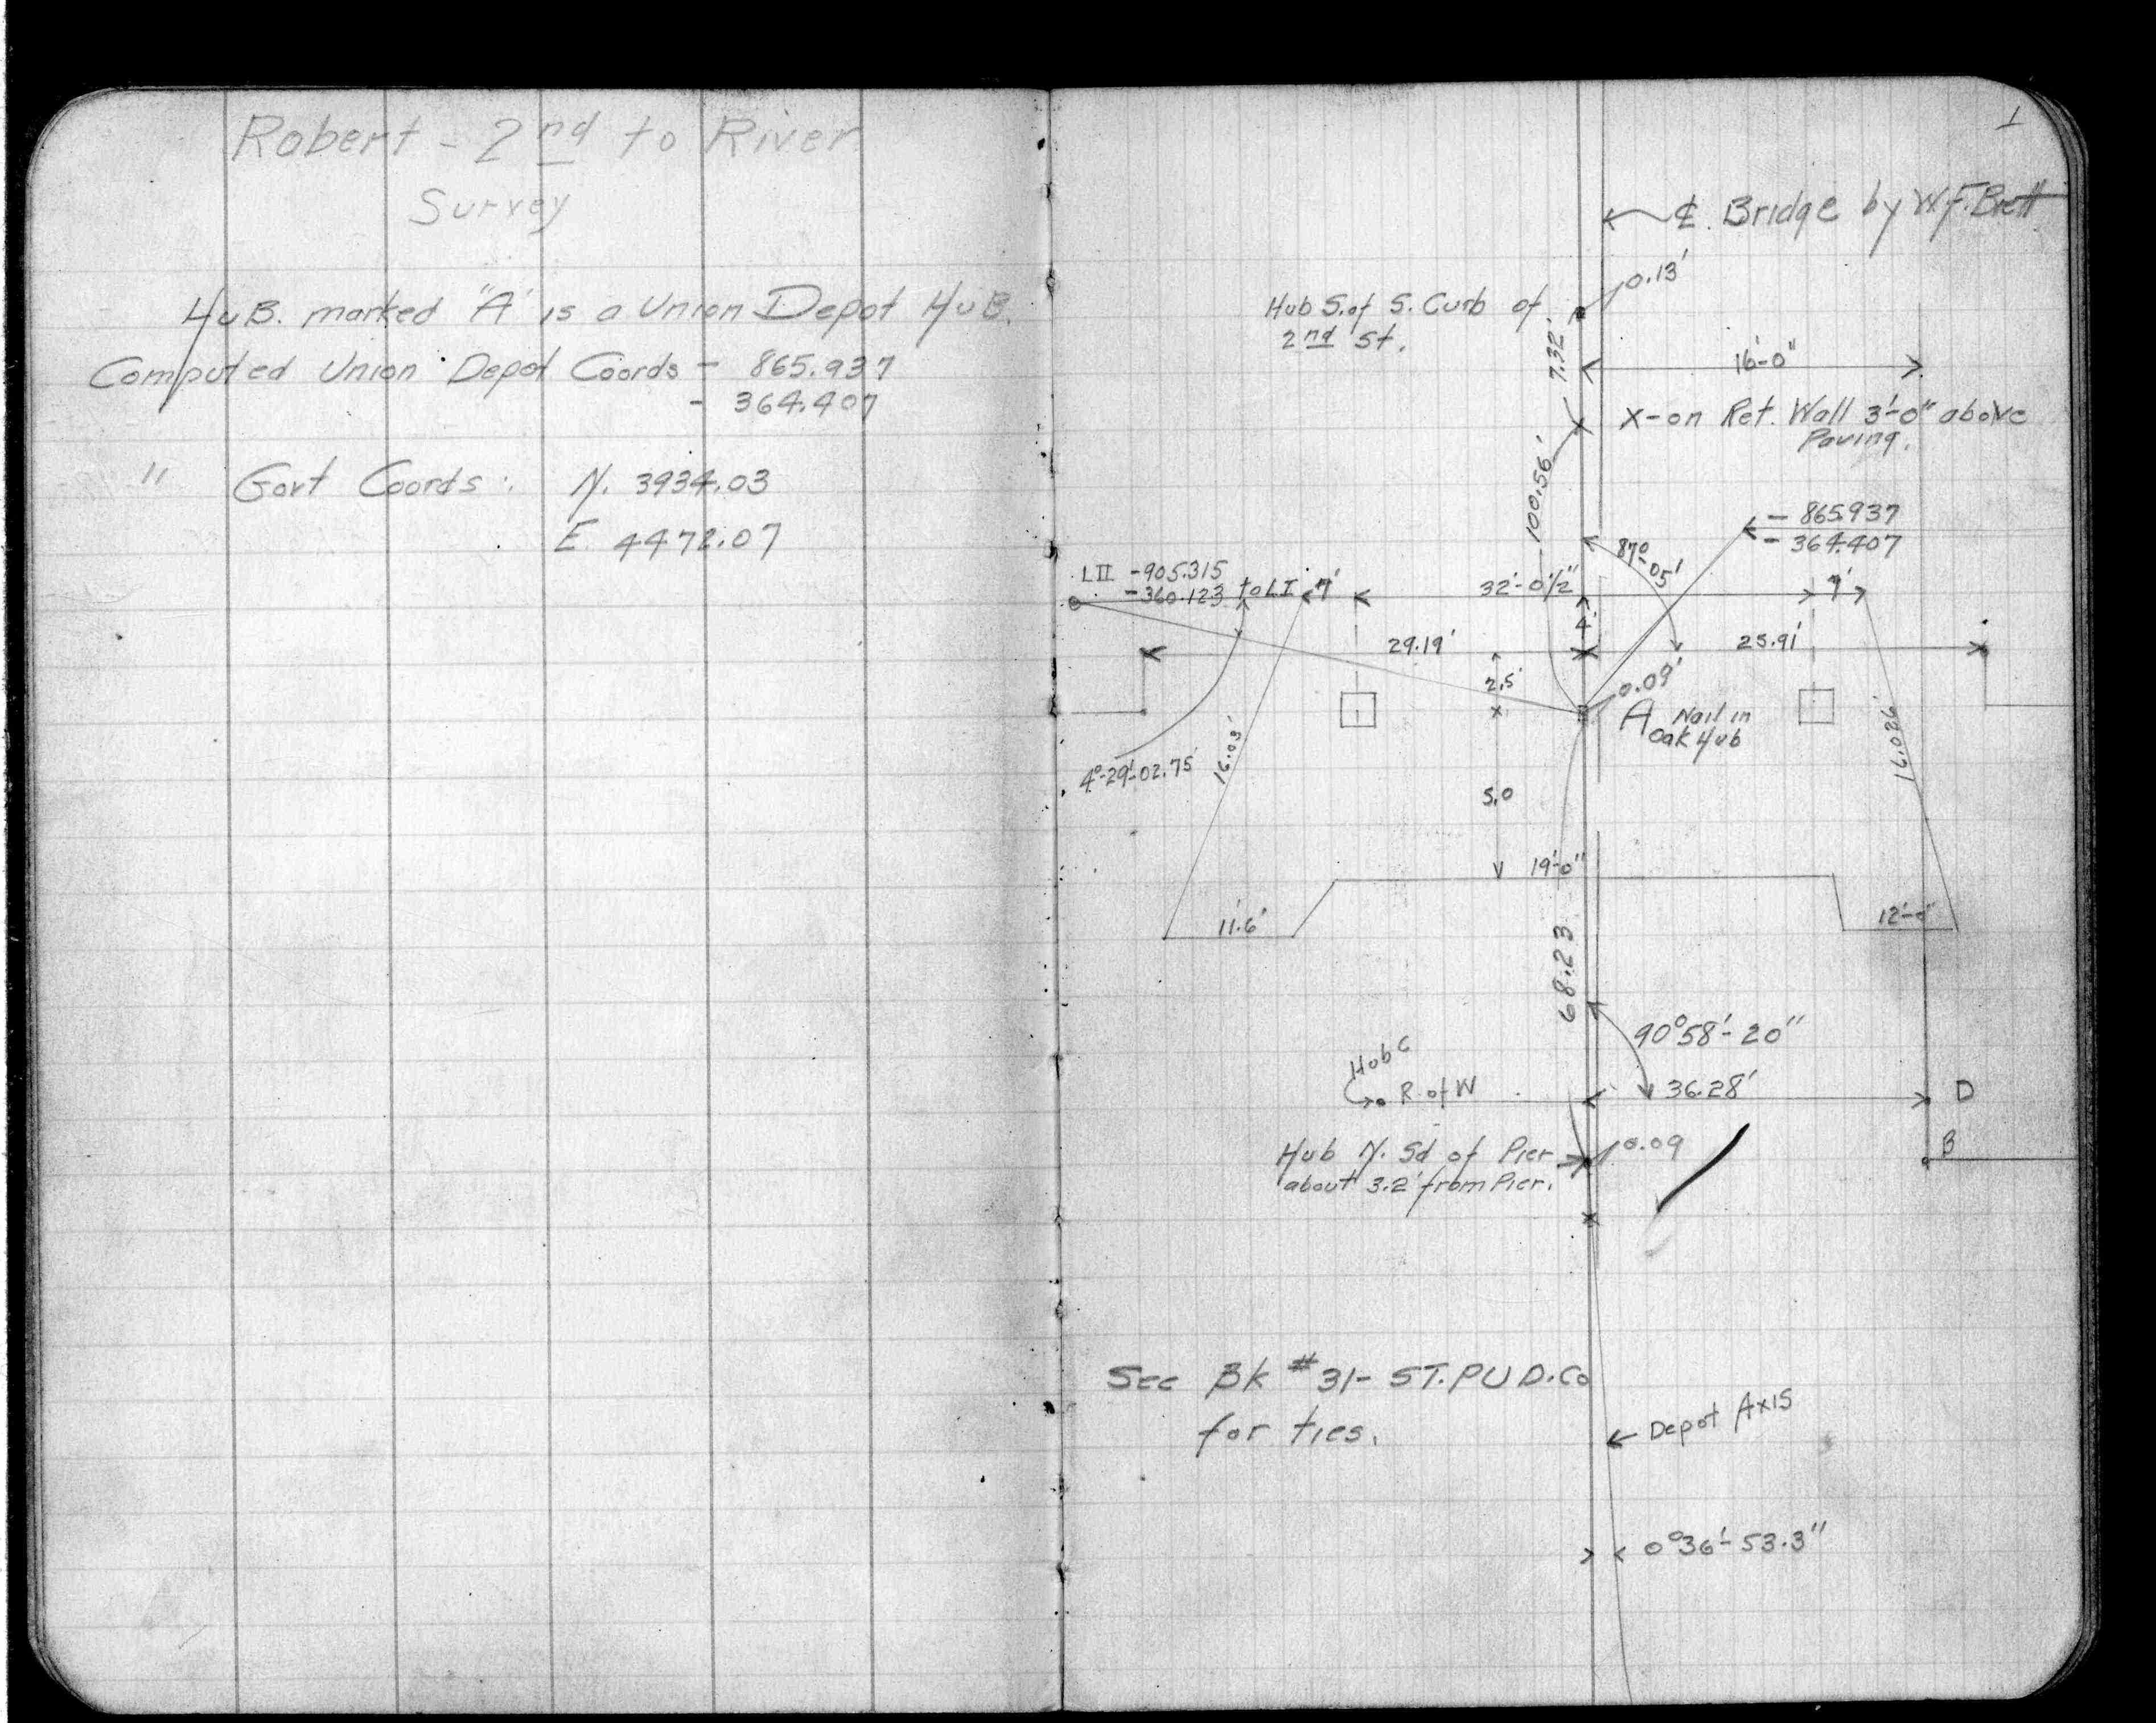 Robert - 2nd to River
Survey
HUB. marked "A" is a Union Depot HUB.
Computed Union Depot Coords - 865.937
- 364.407
" Govt Coords: N. 3934.03
E. 4472.07
1
℄ Bridge by W.F. Brett
0.13'
Hub S. of S. Curb of
2nd St.
7.32'
16'-0"
X-on Ret. Wall 3'-0" above
Paving.
100.56'
- 865.937
- 364.407
87°-05'
LII -905.315
-360.123 to LI
7'
32'-0 1/2"
7'
4'
29.19'
25.91'
2.5'
0.09'
A Nail in
Oak Hub
4°-29'-02.75
16.03'
16.026'
5.0
19'-0"
11.6'
12'-0"
68.23
90°58'-20"
Hub C
R of W
36.28'
D
Hub N. Sd of Pier
about 3.2' from Pier.
0.09
B
See Bk #31- ST.P.U.D.Co
for ties.
Depot Axis
0°36'-53.3"